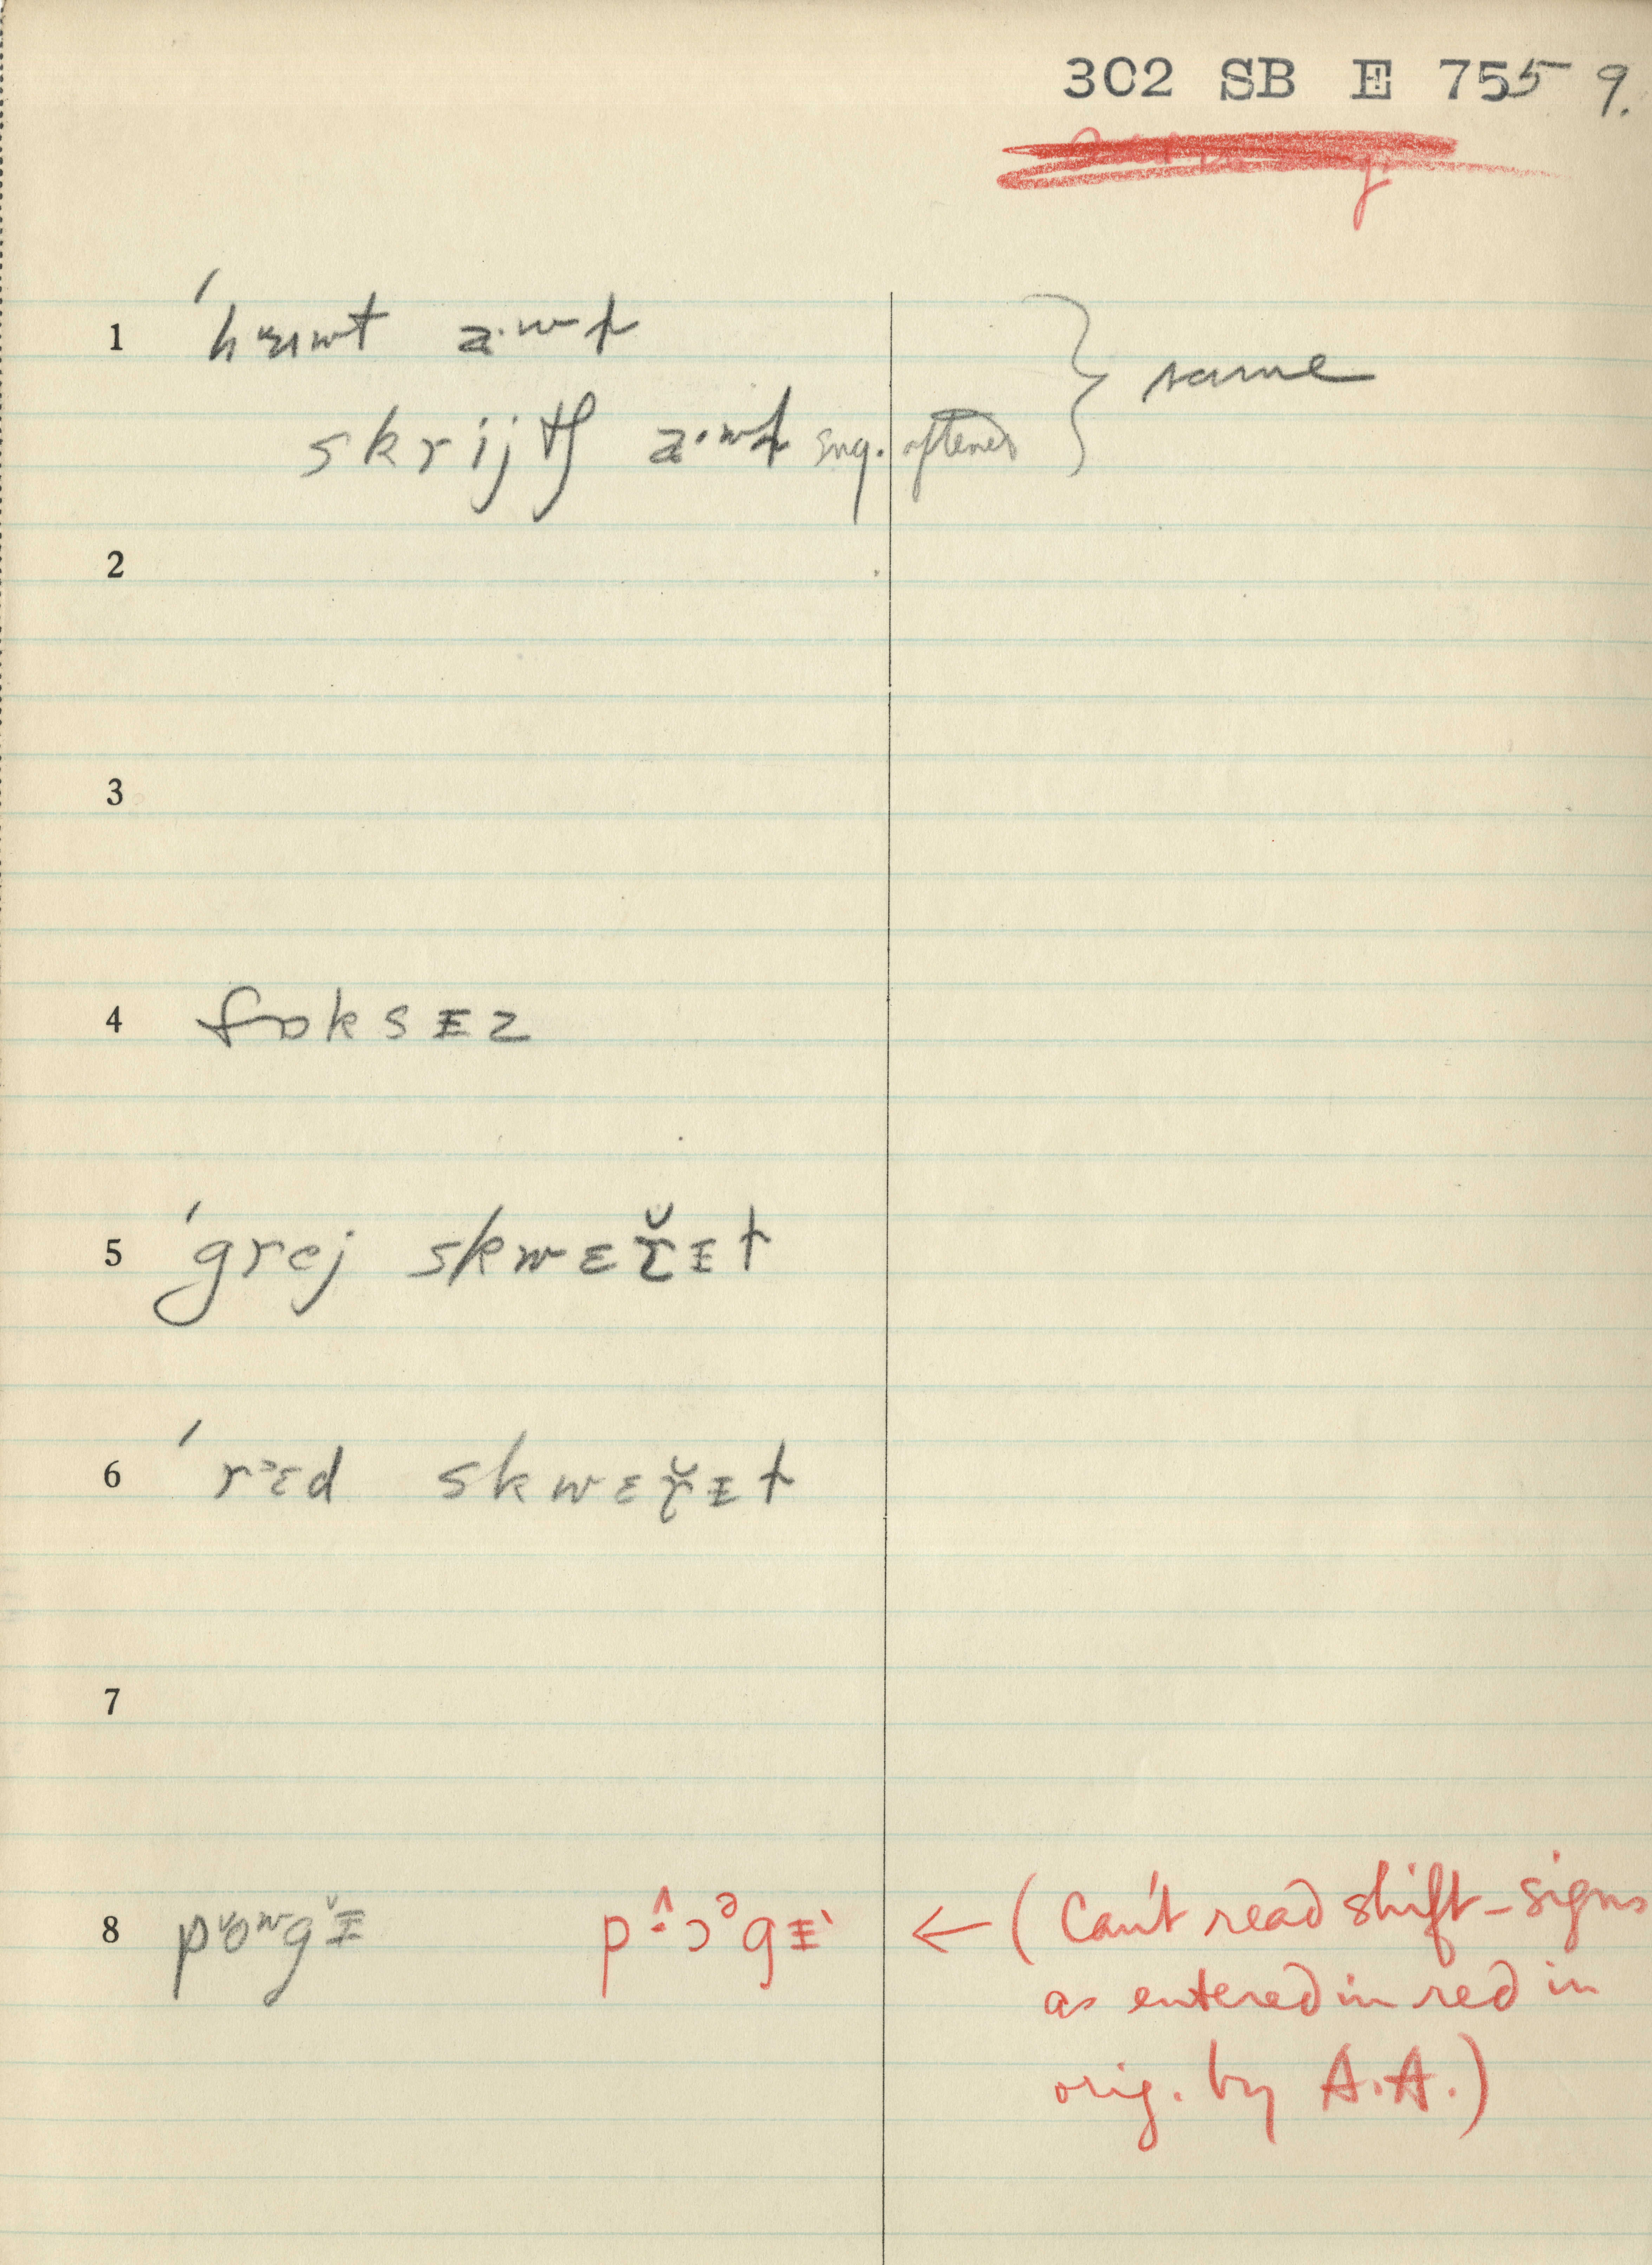 302 SB E 755 9.
1 ˈhuᵻwt a·wł
skrijtʃ a·wł sug. oftener } same
2
3
4 fɒksᵻz
5 ˈgrej skwɛr̆ᵻt
6 ˈrᵊɛd skwɛr̆ᵻt
7
8 pʊwgᵻ p^ɔᵊgᵻ ← (Can't read shift-signs
as entered in red in
orig. by A.A.)